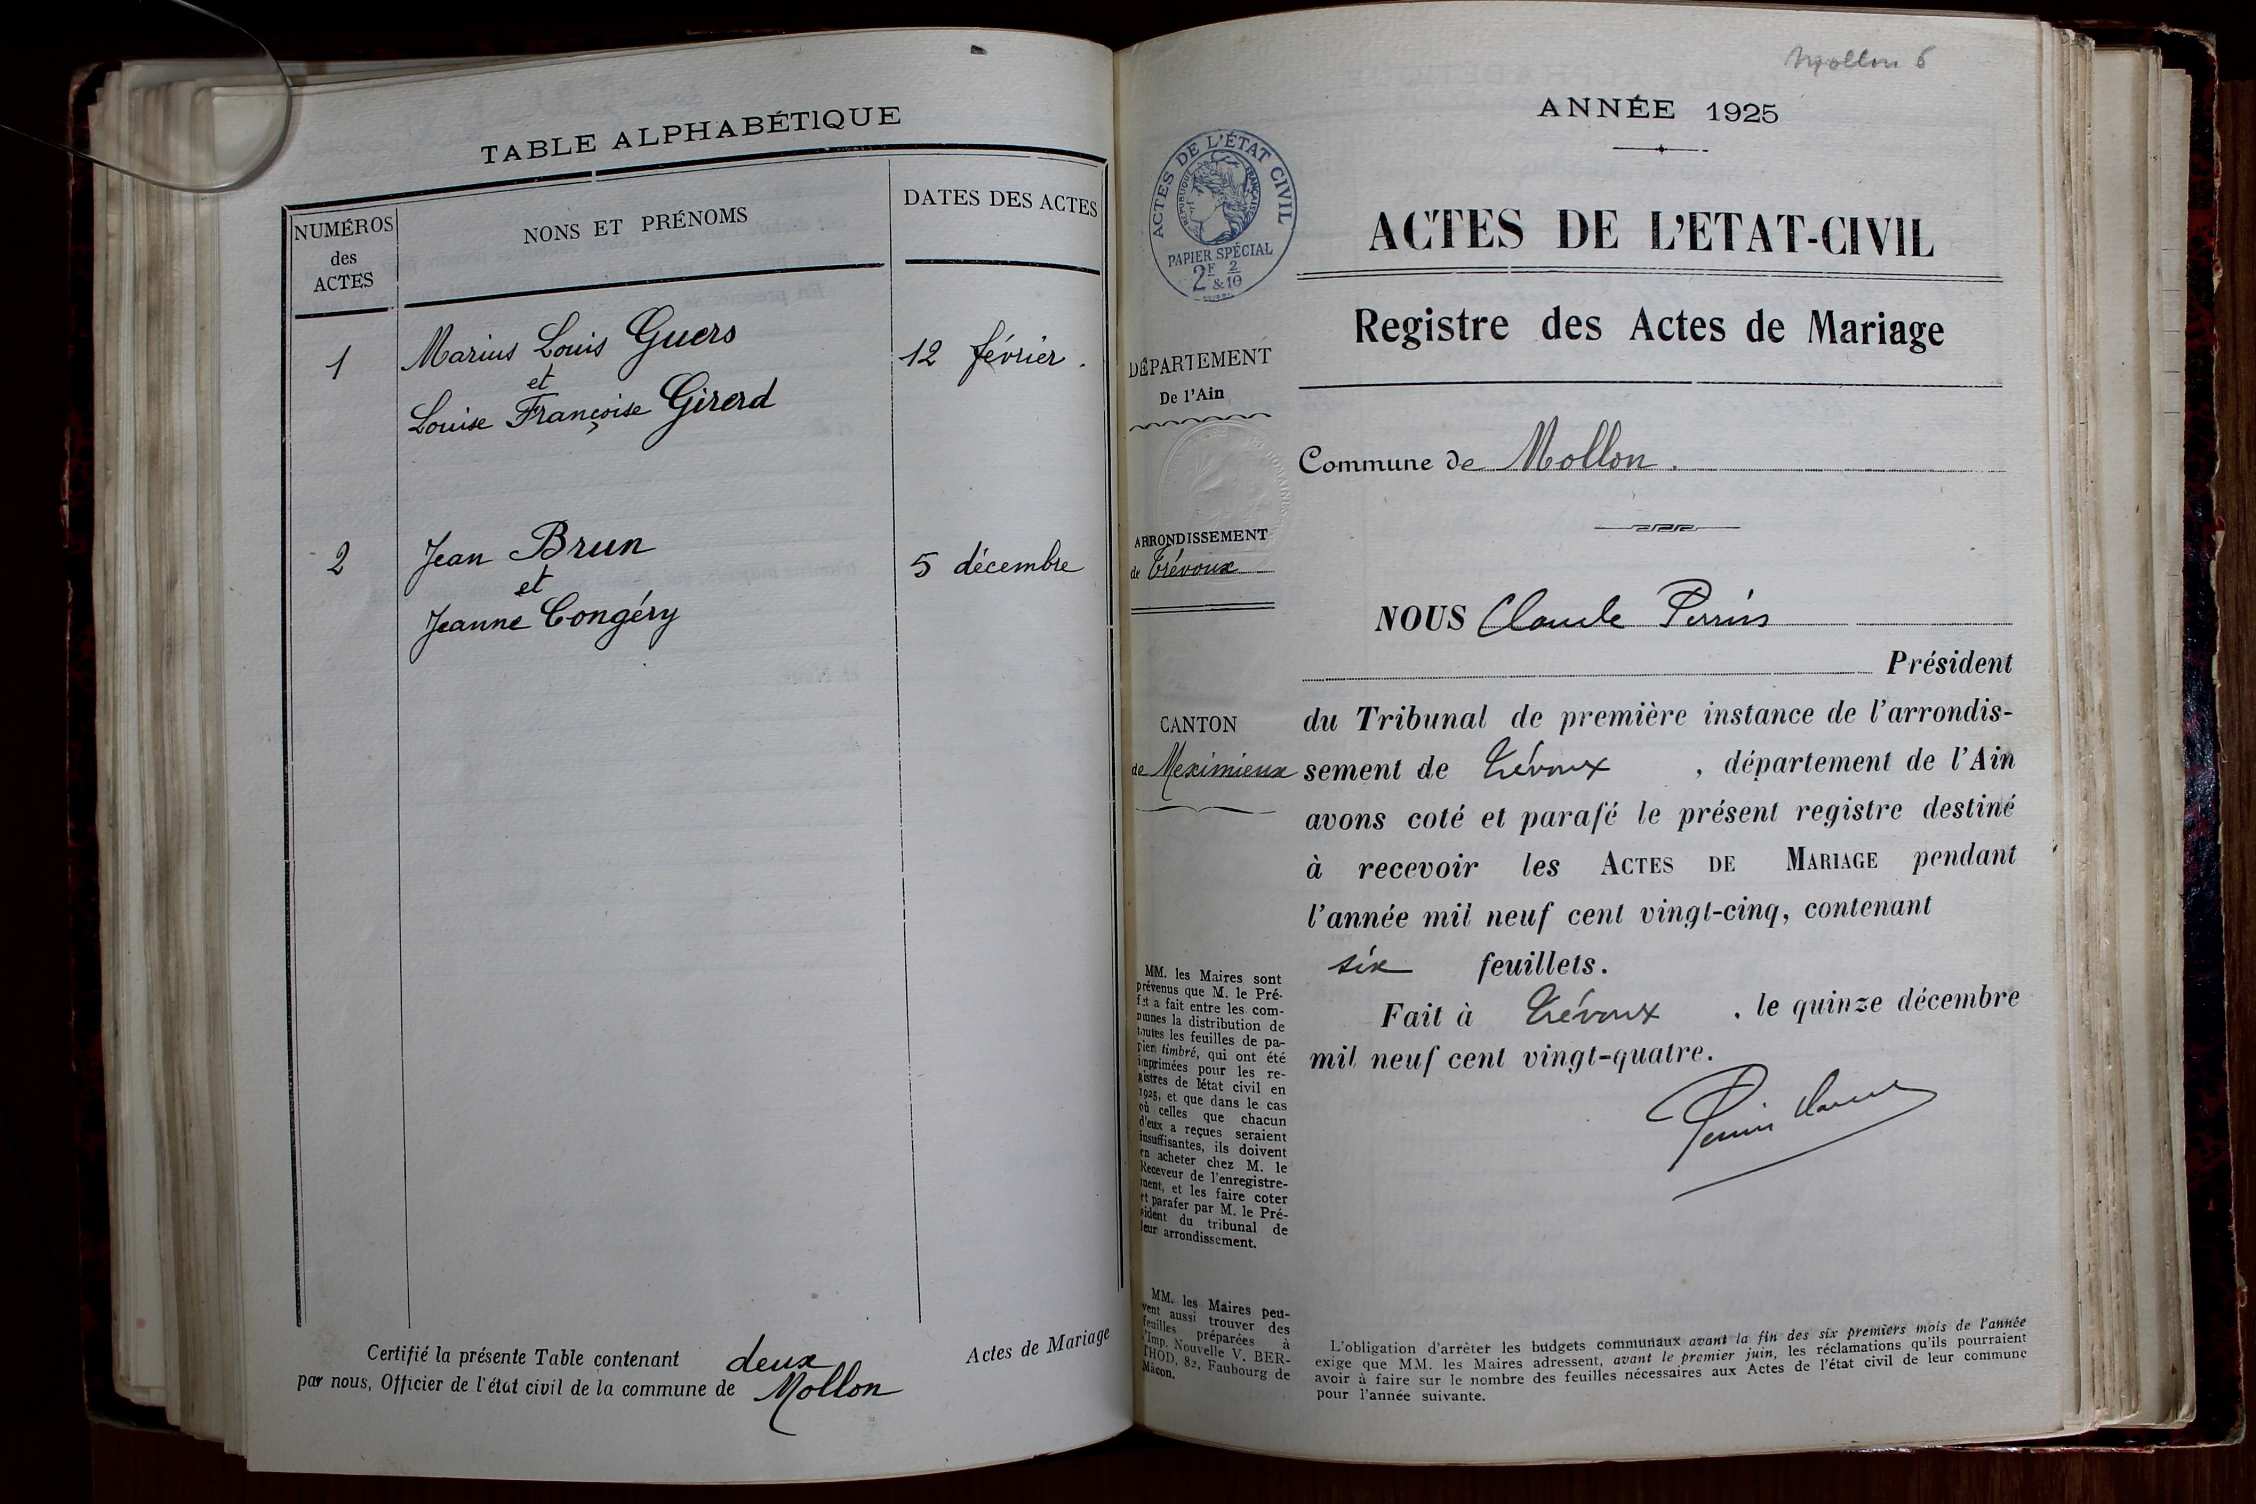 TABLE ALPHABÉTIQUE
NUMÉROS
des
ACTES
NONS ET PRÉNOMS
DATES DES ACTES
1
Marius Louis Guers
et
Louise Françoise Girerd
12 février.
2
Jean Brun
et
Jeanne Congéry
5 décembre
Certifié la présente Table contenant deux Actes de Mariage
par nous, Officier de l'état civil de la commune de Mollon
Mollon 6
ANNÉE 1925
ACTES DE L'ÉTAT CIVIL
RÉPUBLIQUE FRANÇAISE
PAPIER SPÉCIAL
2F & 2/10
ACTES DE L'ETAT-CIVIL
Registre des Actes de Mariage
DÉPARTEMENT
De l'Ain
Commune de Mollon.
ARRONDISSEMENT
de Trévoux
NOUS Claude Perrin
Président
CANTON
de Meximieux
du Tribunal de première instance de l'arrondis-
sement de Trévoux, département de l'Ain
avons coté et parafé le présent registre destiné
à recevoir les ACTES DE MARIAGE pendant
l'année mil neuf cent vingt-cinq, contenant
six feuillets.
Fait à Trévoux, le quinze décembre
mil neuf cent vingt-quatre.
Perrin Claude
MM. les Maires sont
prévenus que M. le Pré-
fet a fait entre les com-
munes la distribution de
toutes les feuilles de pa-
pier timbré, qui ont été
imprimées pour les re-
gistres de l'état civil en
1925, et que dans le cas
où celles que chacun
d'eux a reçues seraient
insuffisantes, ils doivent
en acheter chez M. le
Receveur de l'enregistre-
ment, et les faire coter
et parafer par M. le Pré-
sident du tribunal de
leur arrondissement.
MM. les Maires peu-
vent aussi trouver des
feuilles préparées à
l'Imp. Nouvelle V. BER-
THOD, 82, Faubourg de
Mâcon.
L'obligation d'arrêter les budgets communaux avant la fin des six premiers mois de l'année
exige que MM. les Maires adressent, avant le premier juin, les réclamations qu'ils pourraient
avoir à faire sur le nombre des feuilles nécessaires aux Actes de l'état civil de leur commune
pour l'année suivante.